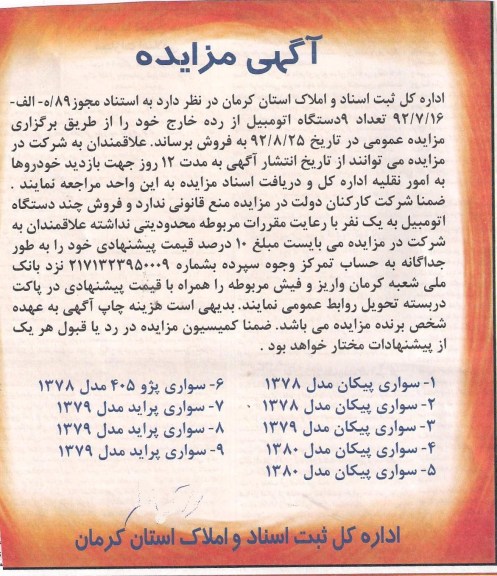 آگهی مزایده
اداره کل ثبت اسناد و املاک استان کرمان در نظر دارد به استناد مجوز ۸۹/ه- الف-
۹۲/۷/۱۶ تعداد ۹دستگاه اتومبیل از رده خارج خود را از طریق برگزاری
مزایده عمومی در تاریخ ۹۲/۸/۲۵ به فروش برساند. علاقمندان به شرکت در
مزایده می توانند از تاریخ انتشار آگهی به مدت ۱۲ روز جهت بازدید خودروها
به امور نقلیه اداره کل و دریافت اسناد مزایده به این واحد مراجعه نمایند .
ضمنا شرکت کارکنان دولت در مزایده منع قانونی ندارد و فروش چند دستگاه
اتومبیل به یک نفر با رعایت مقررات مربوطه محدودیتی نداشته علاقمندان به
شرکت در مزایده می بایست مبلغ ۱۰ درصد قیمت پیشنهادی خود را به طور
جداگانه به حساب تمرکز وجوه سپرده بشماره ۲۱۷۱۳۲۳۹۵۰۰۰۹ نزد بانک
ملی شعبه کرمان واریز و فیش مربوطه را همراه با قیمت پیشنهادی در پاکت
دربسته تحویل روابط عمومی نمایند. بدیهی است هزینه چاپ آگهی به عهده
شخص برنده مزایده می باشد. ضمنا کمیسیون مزایده در رد یا قبول هر یک
از پیشنهادات مختار خواهد بود .
۱- سواری پیکان مدل ۱۳۷۸
۲- سواری پیکان مدل ۱۳۷۸
۳- سواری پیکان مدل ۱۳۷۹
۴- سواری پیکان مدل ۱۳۸۰
۵- سواری پیکان مدل ۱۳۸۰
۶- سواری پژو ۴۰۵ مدل ۱۳۷۸
۷- سواری پراید مدل ۱۳۷۹
۸- سواری پراید مدل ۱۳۷۹
۹- سواری پراید مدل ۱۳۷۹
اداره کل ثبت اسناد و املاک استان کرمان